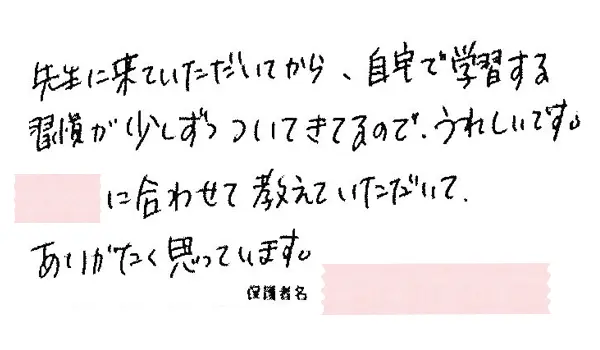 先生に来ていただいてから、自宅で学習する
習慣が少しずつついてきてるので、うれしいです。
に合わせて教えていただいて、
ありがたく思っています。
保護者名